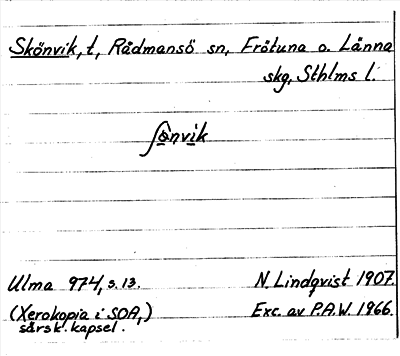 Skönvik, t, Rådmansö sn, Frötuna o. Länna
skg, Sthlms l.
ʃönvik
Ulma 974, s. 13. N. Lindqvist 1907.
(Xerokopia i SOA,) Exc. av P.A.W. 1966.
särsk. kapsel.